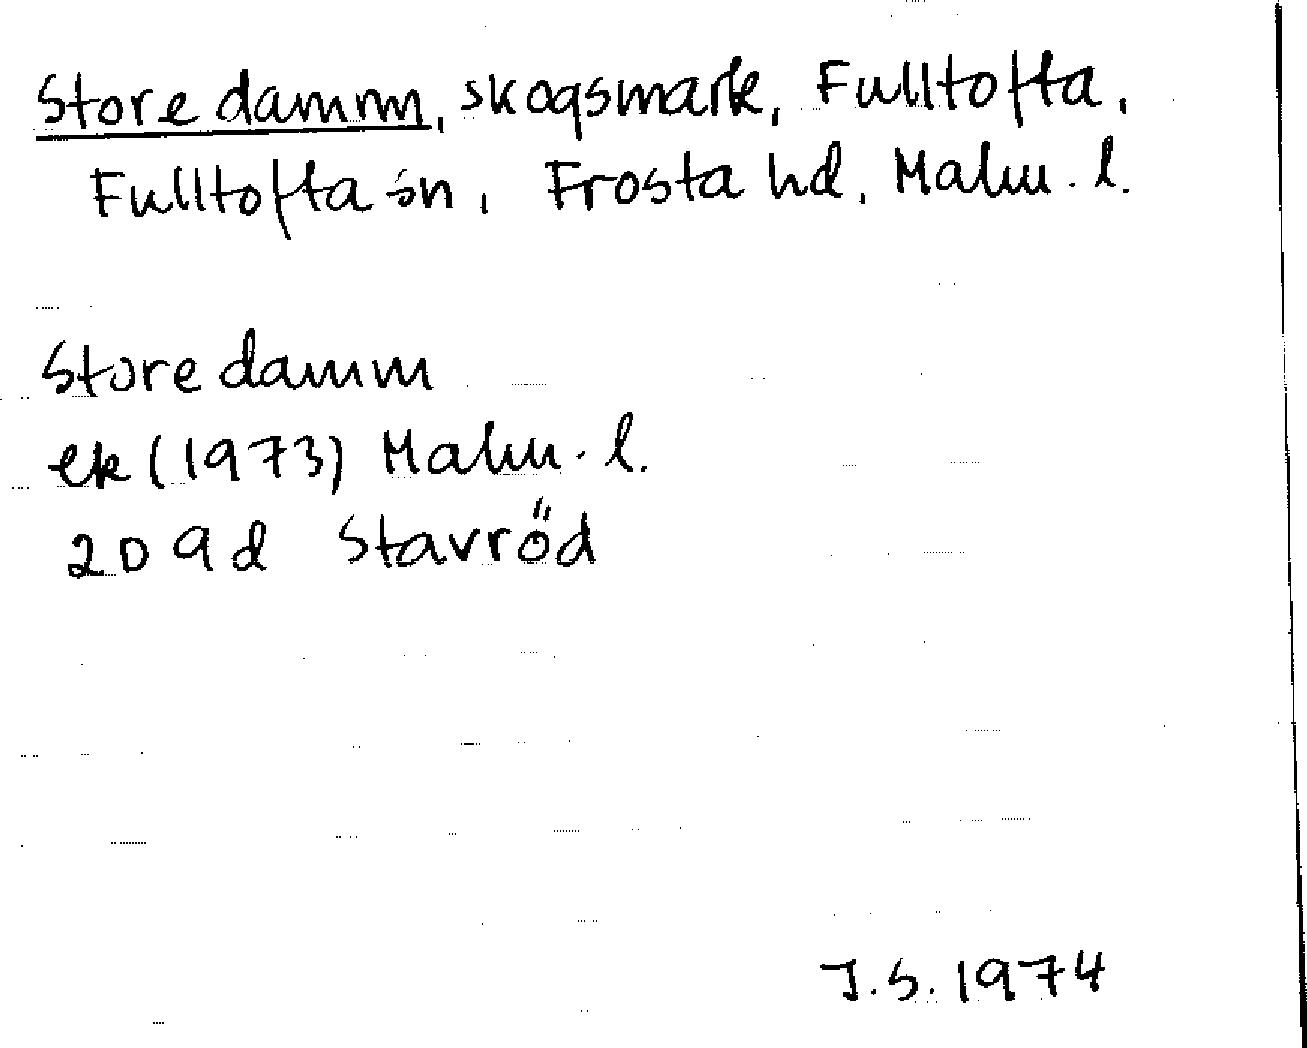 Store damm, skogsmark, Fulltofta,
Fulltofta sn, Frosta hd, Malm. l.
Store damm
ek (1973) Malm. l.
2D 9d Stavröd
J.S. 1974